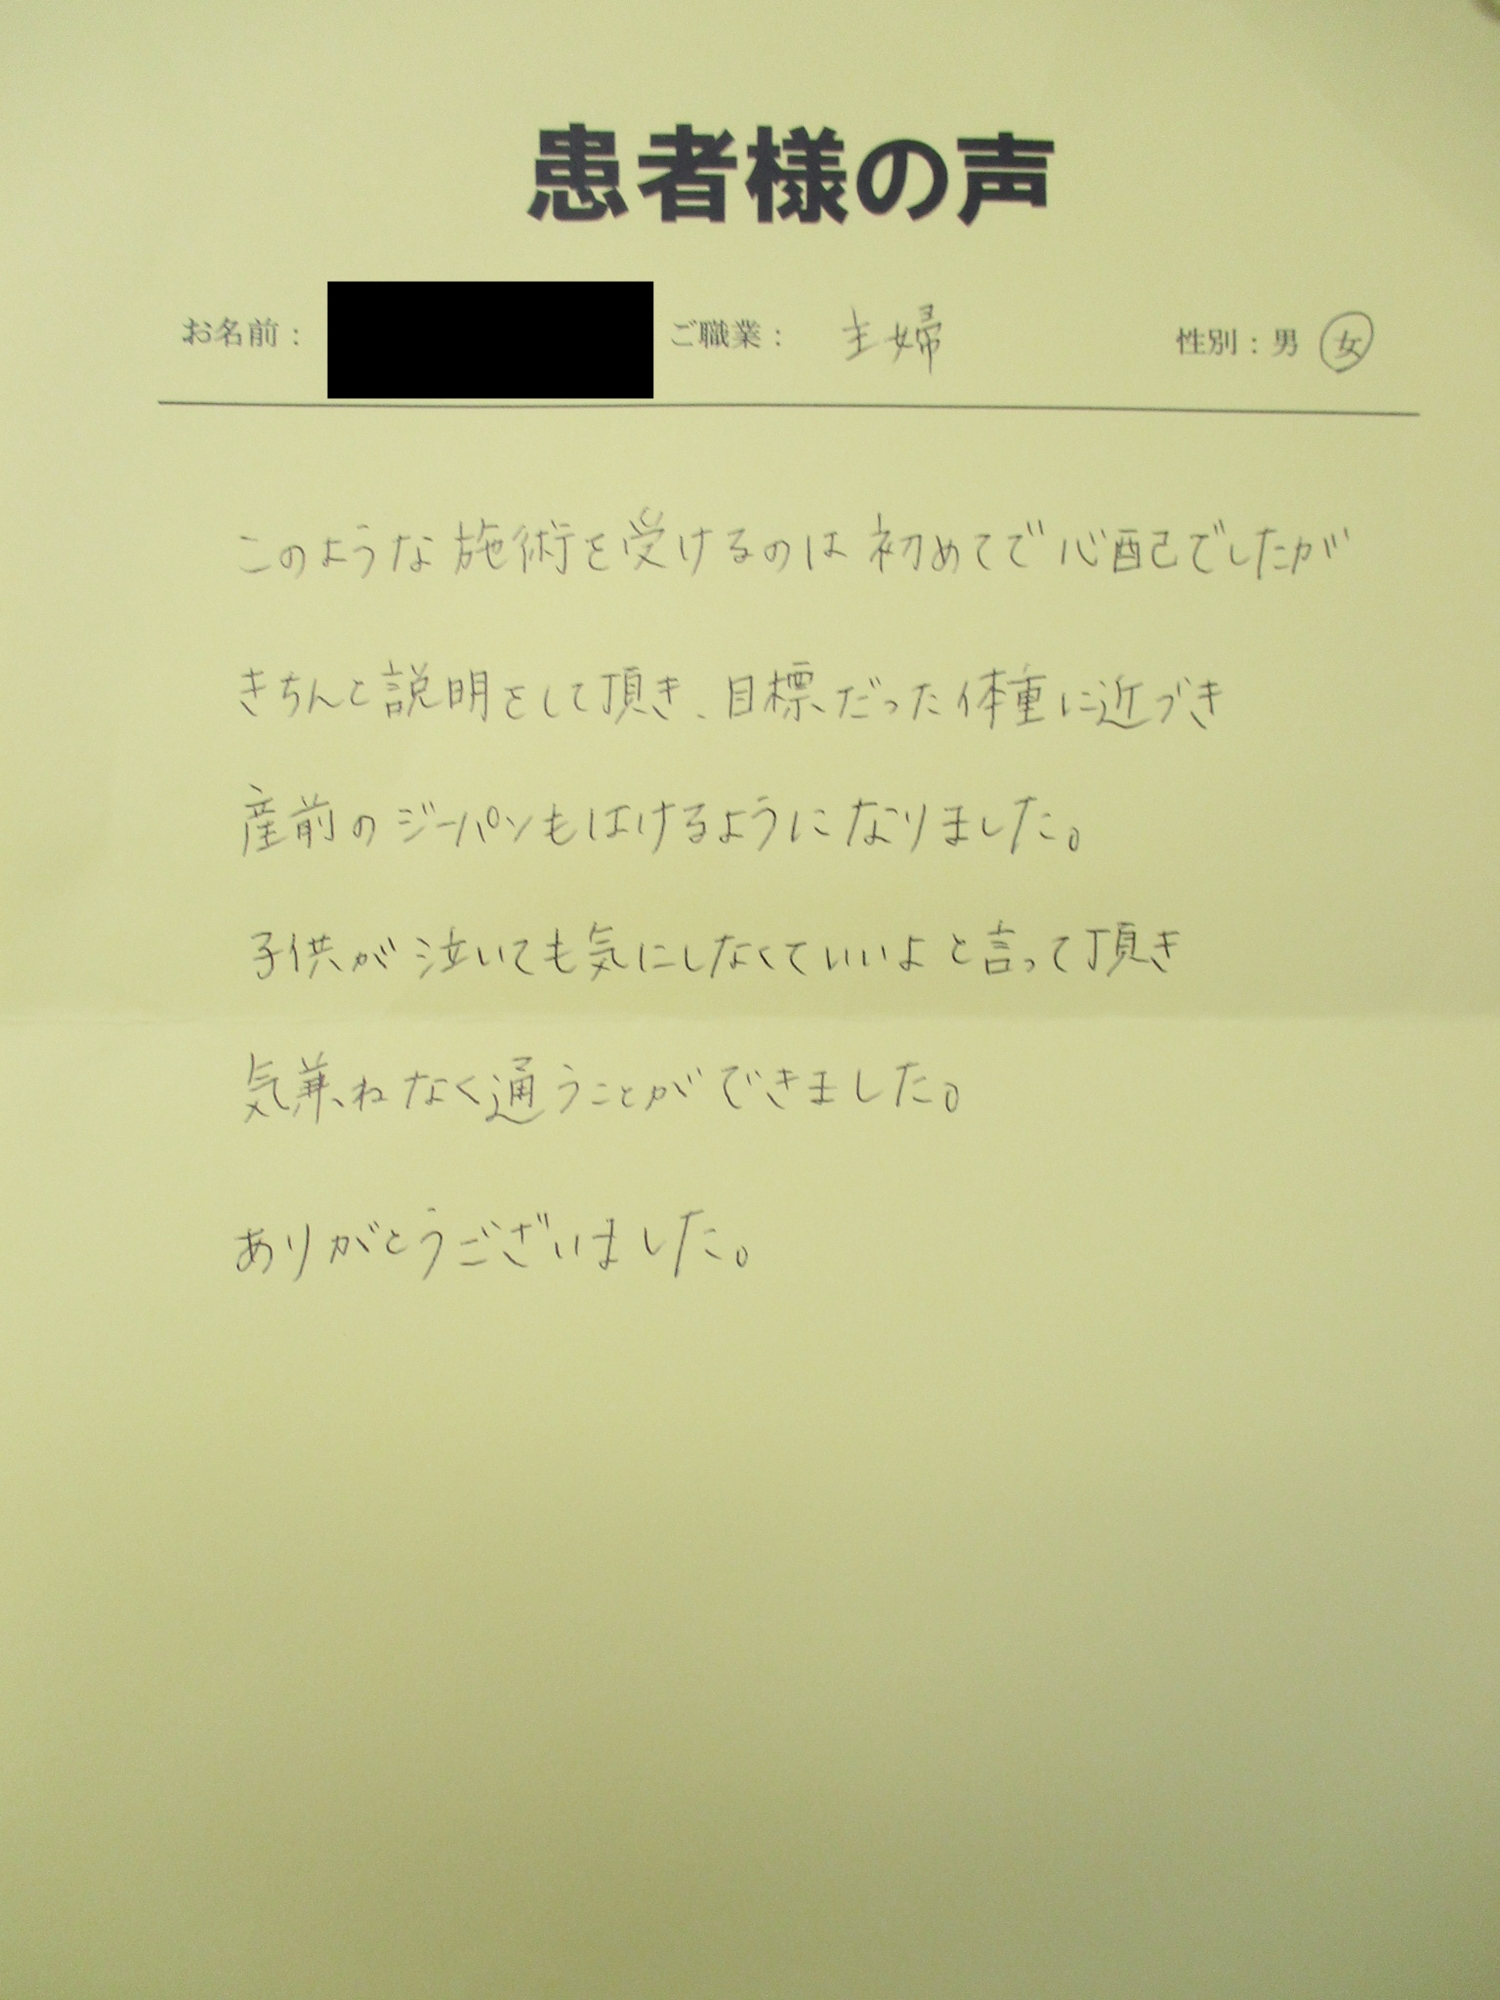 患者様の声
お名前： ご職業： 主婦 性別：男 女
このような施術を受けるのは初めてで心配でしたが
きちんと説明をして頂き、目標だった体重に近づき
産前のジーパンもはけるようになりました。
子供が泣いても気にしなくていいよと言って頂き
気兼ねなく通うことができました。
ありがとうございました。